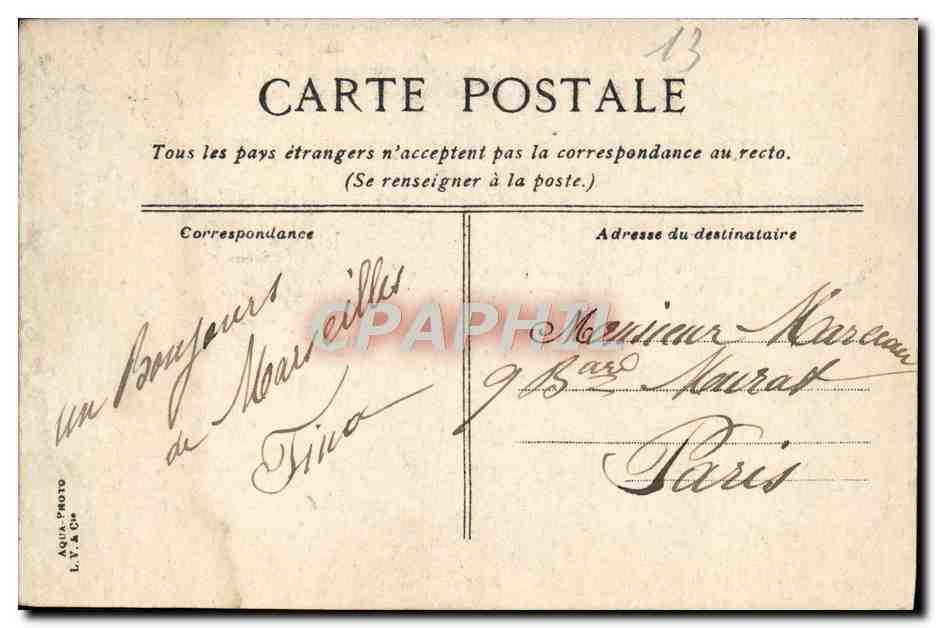 13
CARTE POSTALE
Tous les pays étrangers n'acceptent pas la correspondance au recto.
(Se renseigner à la poste.)
Correspondance
un Bonjours
de Marseilles
Tino
AQUA-PHOTO
L. V. & Cie
Adresse du destinataire
Monsieur Marceau
9 Bard Mourat
Paris
CPAPHIL